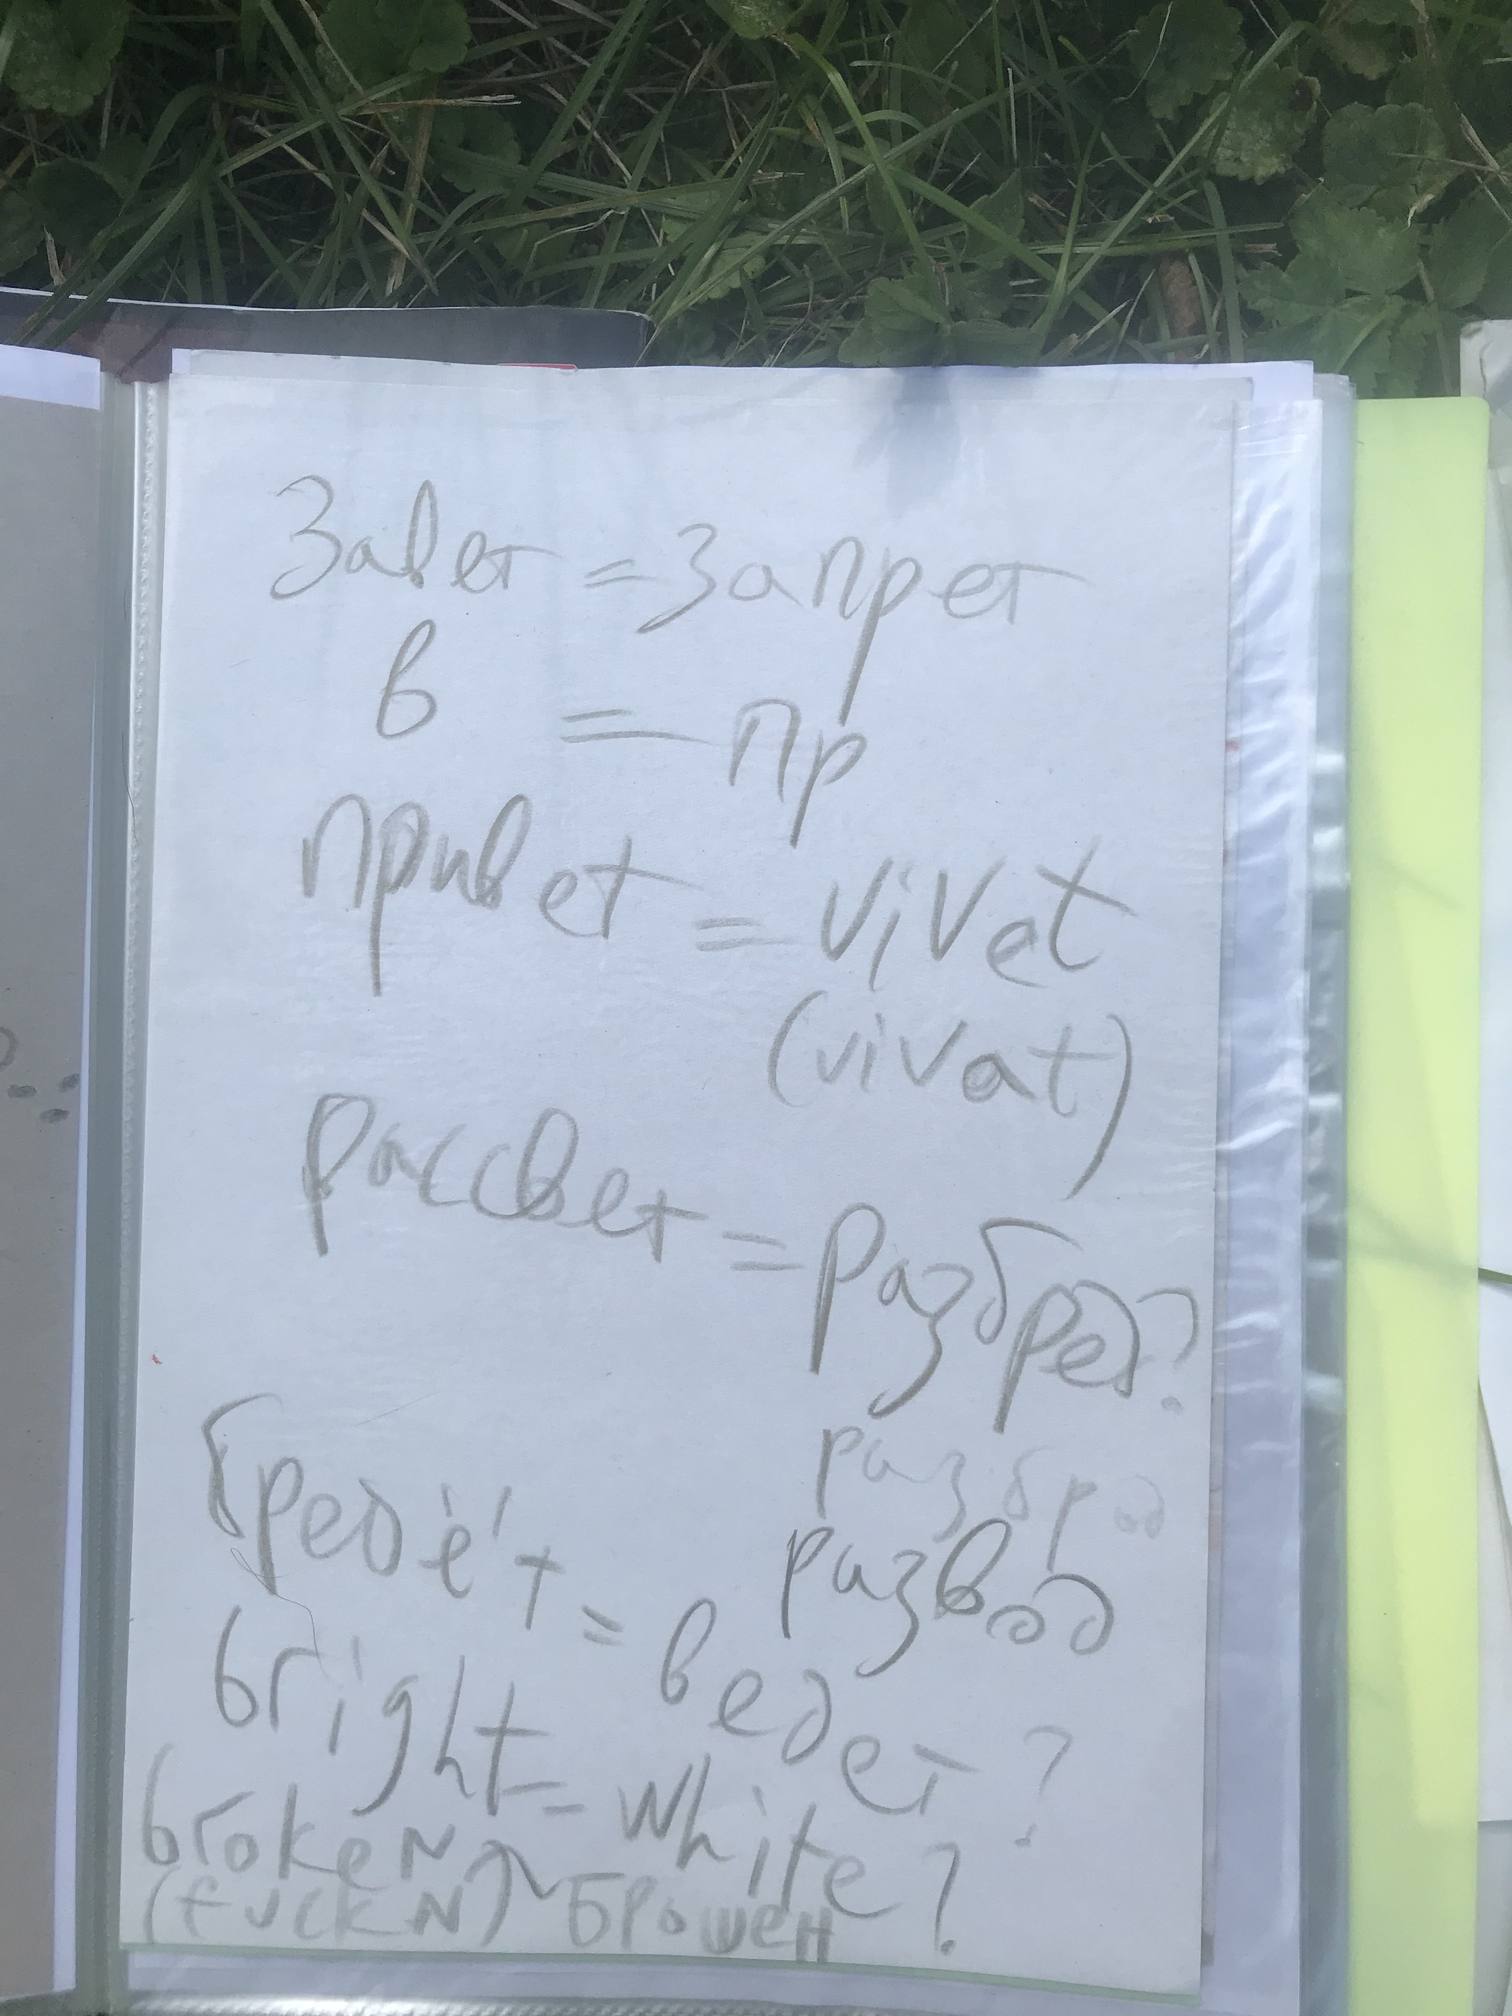 Завет = запрет
в = пр
привет = vivet
(vivat)
рассвет = разбред?
разброд
развод
бредёт = ведет?
bright = white?
brokeN ~ Брошен
(fuckN)